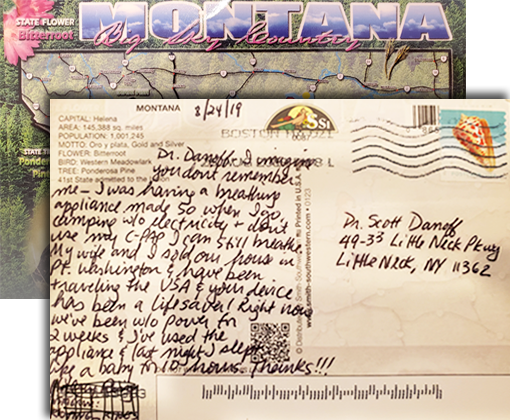 STATE FLOWER
Bitterroot
MONTANA
Big Sky Country
STATE
Ponderosa
Pine
MONTANA
8/24/19
CAPITAL: Helena
AREA: 145,388 sq. miles
POPULATION: 1,001,245
MOTTO: Oro y plata, Gold and Silver
FLOWER: Bitterroot
BIRD: Western Meadowlark
TREE: Ponderosa Pine
41st State admitted to the
BOSTON
Dr. Danoff, I imagine
you don't remember
me - I was having a breathing
appliance made so when I go
camping w/o electricity & don't
use my C-PAP I can still breathe
My wife and I sold our house in
Pt. Washington & have been
traveling the USA & your device
has been a lifesaver! Right now
we've been w/o power for
2 weeks & I've used the
appliance & last night I slept
like a baby for 10 hours. Thanks!!!
Printed in U.S.A.
www.smith-southwestern.com
Dr. Scott Danoff
49-33 Little Neck Pkwy
Little Neck, NY 11362